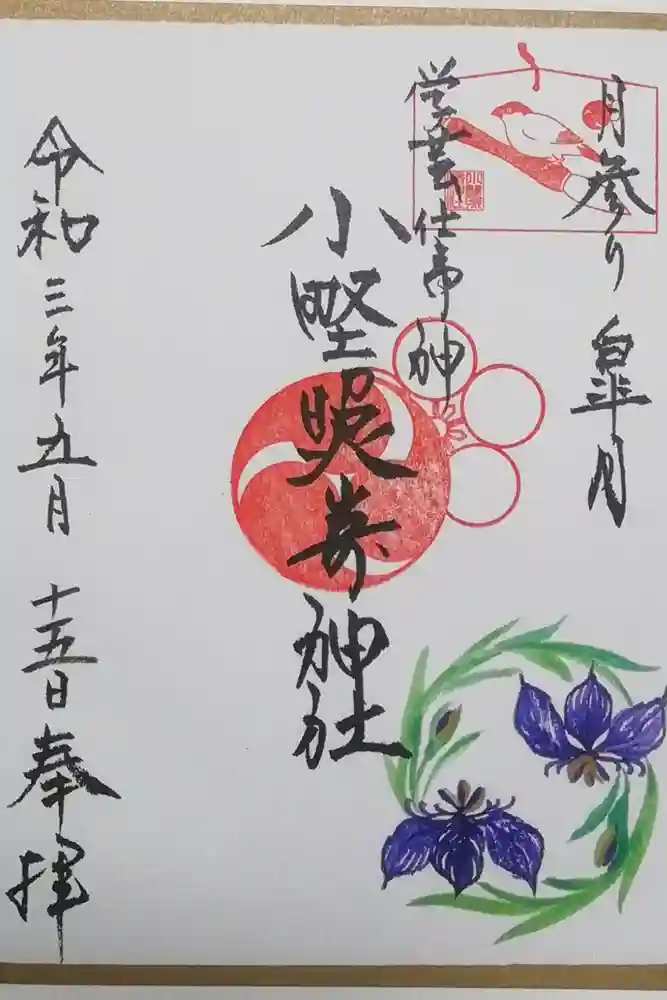 月参り 皐月
學芸仕事神
小野照崎神社
令和三年五月十五日奉拝